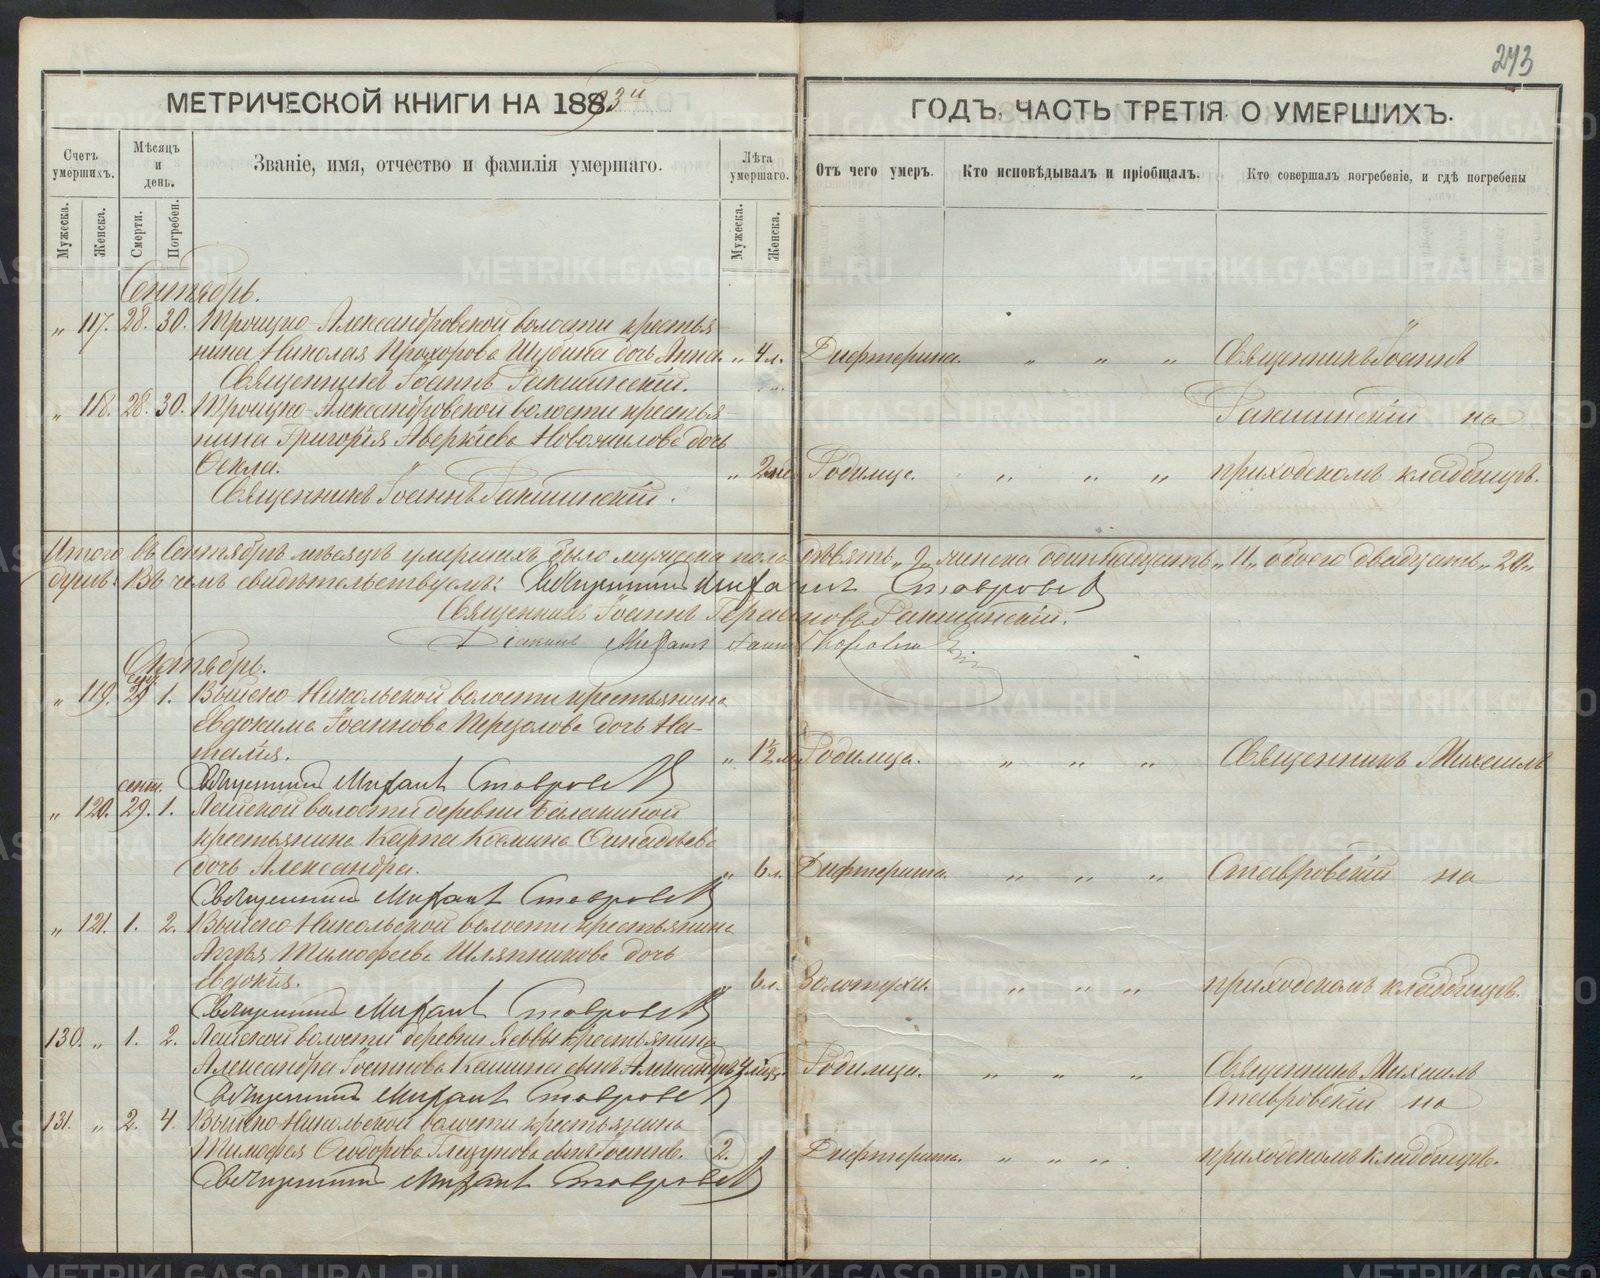 243
МЕТРИЧЕСКОЙ КНИГИ НА 1883й
ГОДЪ, ЧАСТЬ ТРЕТІЯ О УМЕРШИХЪ.
Счетъ умершихъ.
Мѣсяцъ и день.
Званіе, имя, отчество и фамилія умершаго.
Лѣта умершаго.
Отъ чего умеръ.
Кто исповѣдывалъ и пріобщалъ.
Кто совершалъ погребеніе, и гдѣ погребены
Мужеска.
Женска.
Смерти.
Погребен.
Мужеска.
Женска.
Сентябрь.
„ 117. 28. 30. Троицко-Александровской волости крестья-
нина Николая Прохорова Шубина дочь Анна. „ 4 л. Дифтерита. „ „ „ Священникъ Іоаннъ
Священникъ Іоаннъ Ракшинскій.
„ 118. 28. 30. Троицко-Александровской волости крестья- Ракшинскій на
нина Григорія Аверкіева Новожилова дочь
Ѳекла. „ 2 Родимца. „ „ „ приходскомъ кладбищѣ.
Священникъ Іоаннъ Ракшинскій.
Итого въ Сентябрѣ мѣсяцѣ умершихъ было мужеска пола девять „9„ женска одиннадцать „11„ обоего двадцать „20„
душъ. Въ чемъ свидѣтельствуемъ: Священникъ Михаилъ Ставровскій
Священникъ Іоаннъ Герасимовъ Ракшинскій.
Діаконъ Михаилъ
Октябрь.
сент.
„ 119. 29 1. Выйско-Никольской волости крестьянина
Евдокима Іоаннова дочь На-
талія. „ 1½ Родимца. „ „ „ Священникъ Михаилъ
Священникъ Михаилъ Ставровскій
сент.
„ 120. 29. 1. Лайской волости деревни Балакиной
крестьянина Карпа Космина дочь Александра. „ 6 л. Дифтерита. „ „ „ Ставровскій на
Священникъ Михаилъ Ставровскій
„ 121. 1. 2. Выйско-Никольской волости крестьянина
Тимофеева Шляпникова дочь
Евдокія. „ 6 л. Золотухи. „ „ „ приходскомъ кладбищѣ.
Священникъ Михаилъ Ставровскій
130. „ 1. 2. Лайской волости деревни крестьянина
Александра Іоаннова Кашина сынъ Александръ Родимца. „ „ „ Священникъ Михаилъ
Священникъ Михаилъ Ставровскій Ставровскій на
131. „ 2. 4. Выйско-Никольской волости крестьянина
Тимофея Ѳеодорова Глазунова сынъ Іоаннъ. 2. Дифтерита. „ „ „ приходскомъ кладбищѣ.
Священникъ Михаилъ Ставровскій
METRIKI.GASO-URAL.RU